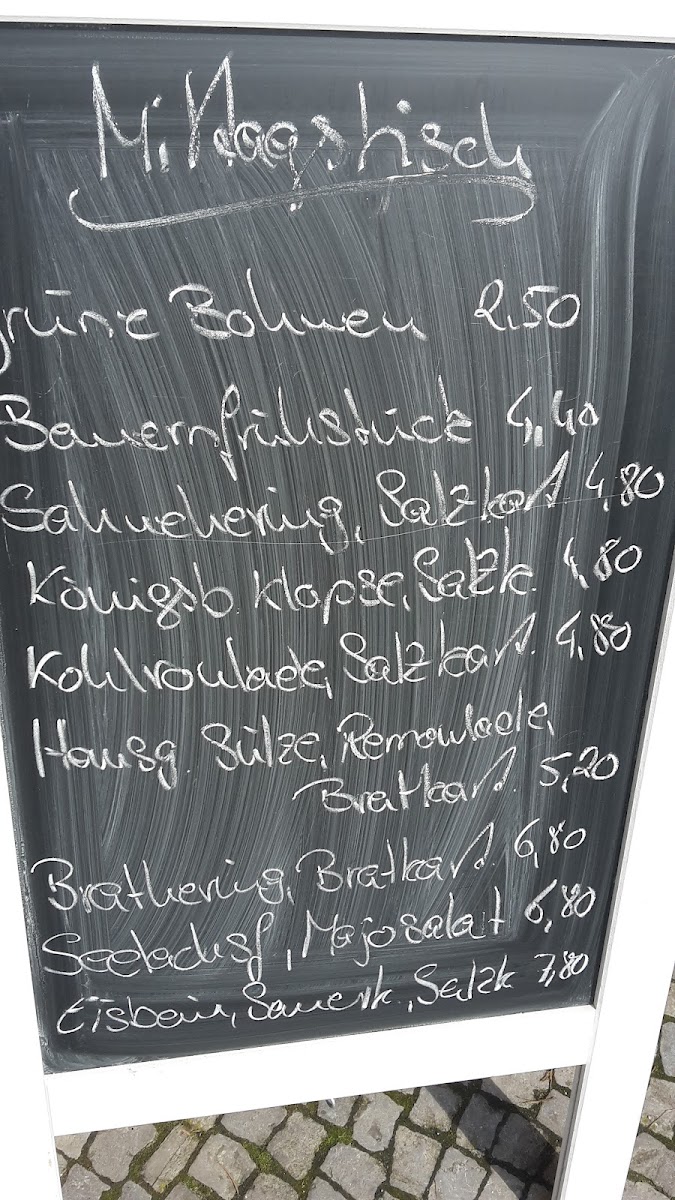 Mittagstisch
grüne Bohnen 2,50
Bauernfrühstück 4,40
Sahnehering, Salzkart. 4,80
Königsb. Klopse, Salzk. 4,80
Kohlroulade, Salzkart. 4,80
Hausg. Sülze, Remoulade,
Bratkart. 5,20
Brathering, Bratkart. 6,80
Seelachsf., Majosalat 6,80
Eisbein, Sauerk., Salzk 7,80